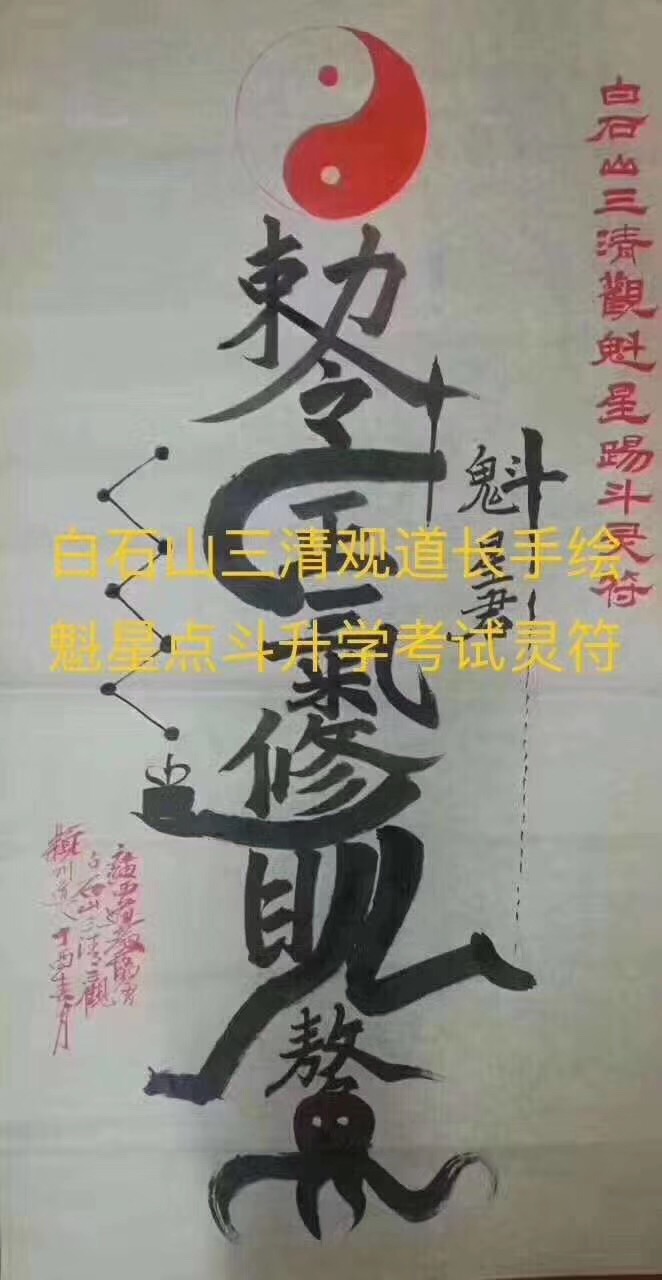 白石山三清觀魁星踢斗灵符
敕令
正氣
修
鰲
魁星君
白石山三清观道长手绘
魁星点斗升学考试灵符
白石山三清觀
丁酉